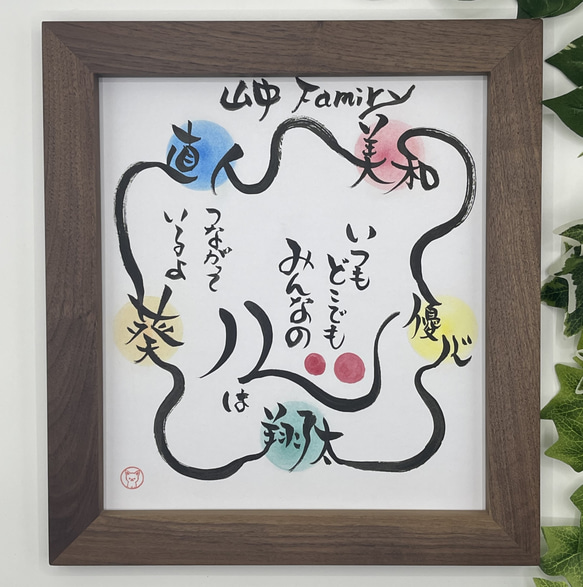 山中 Family
直人
美和
優心
翔太
葵
いつも
どこでも
みんなの
心は
つながって
いるよ